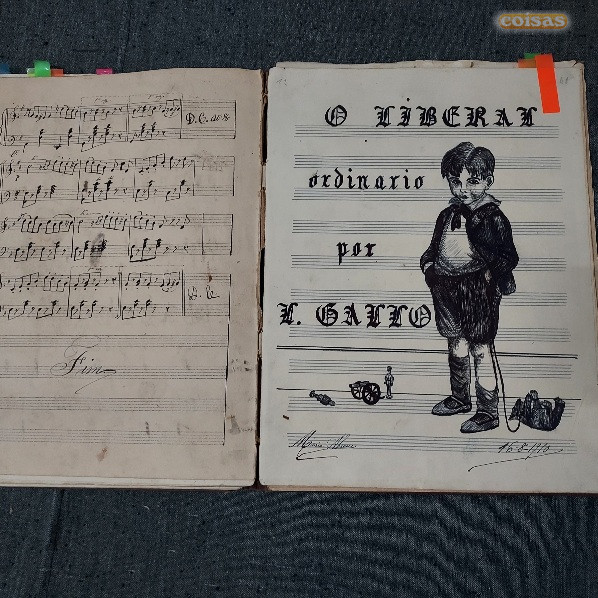 coisas
D.C. al 8
D.C.
Fim
O LIBERAL
ordinario
por
L. GALLO